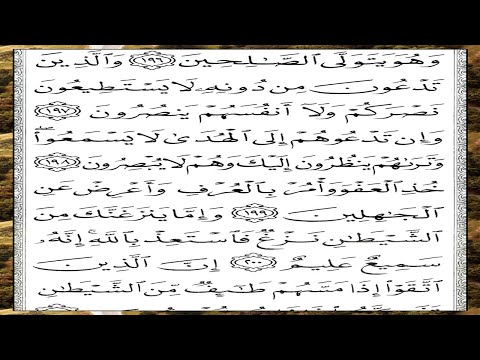 وَهُوَ يَتَوَلَّى ٱلصَّٰلِحِينَ ١٩٦ وَٱلَّذِينَ
تَدْعُونَ مِن دُونِهِۦ لَا يَسْتَطِيعُونَ
نَصْرَكُمْ وَلَآ أَنفُسَهُمْ يَنصُرُونَ ١٩٧
وَإِن تَدْعُوهُمْ إِلَى ٱلْهُدَىٰ لَا يَسْمَعُوا۟ۖ
وَتَرَىٰهُمْ يَنظُرُونَ إِلَيْكَ وَهُمْ لَا يُبْصِرُونَ ١٩٨
خُذِ ٱلْعَفْوَ وَأْمُرْ بِٱلْعُرْفِ وَأَعْرِضْ عَنِ
ٱلْجَٰهِلِينَ ١٩٩ وَإِمَّا يَنزَغَنَّكَ مِنَ
ٱلشَّيْطَٰنِ نَزْغٌ فَٱسْتَعِذْ بِٱللَّهِۚ إِنَّهُۥ
سَمِيعٌ عَلِيمٌ ٢٠٠ إِنَّ ٱلَّذِينَ
ٱتَّقَوْا۟ إِذَا مَسَّهُمْ طَٰٓئِفٌ مِّنَ ٱلشَّيْطَٰنِ